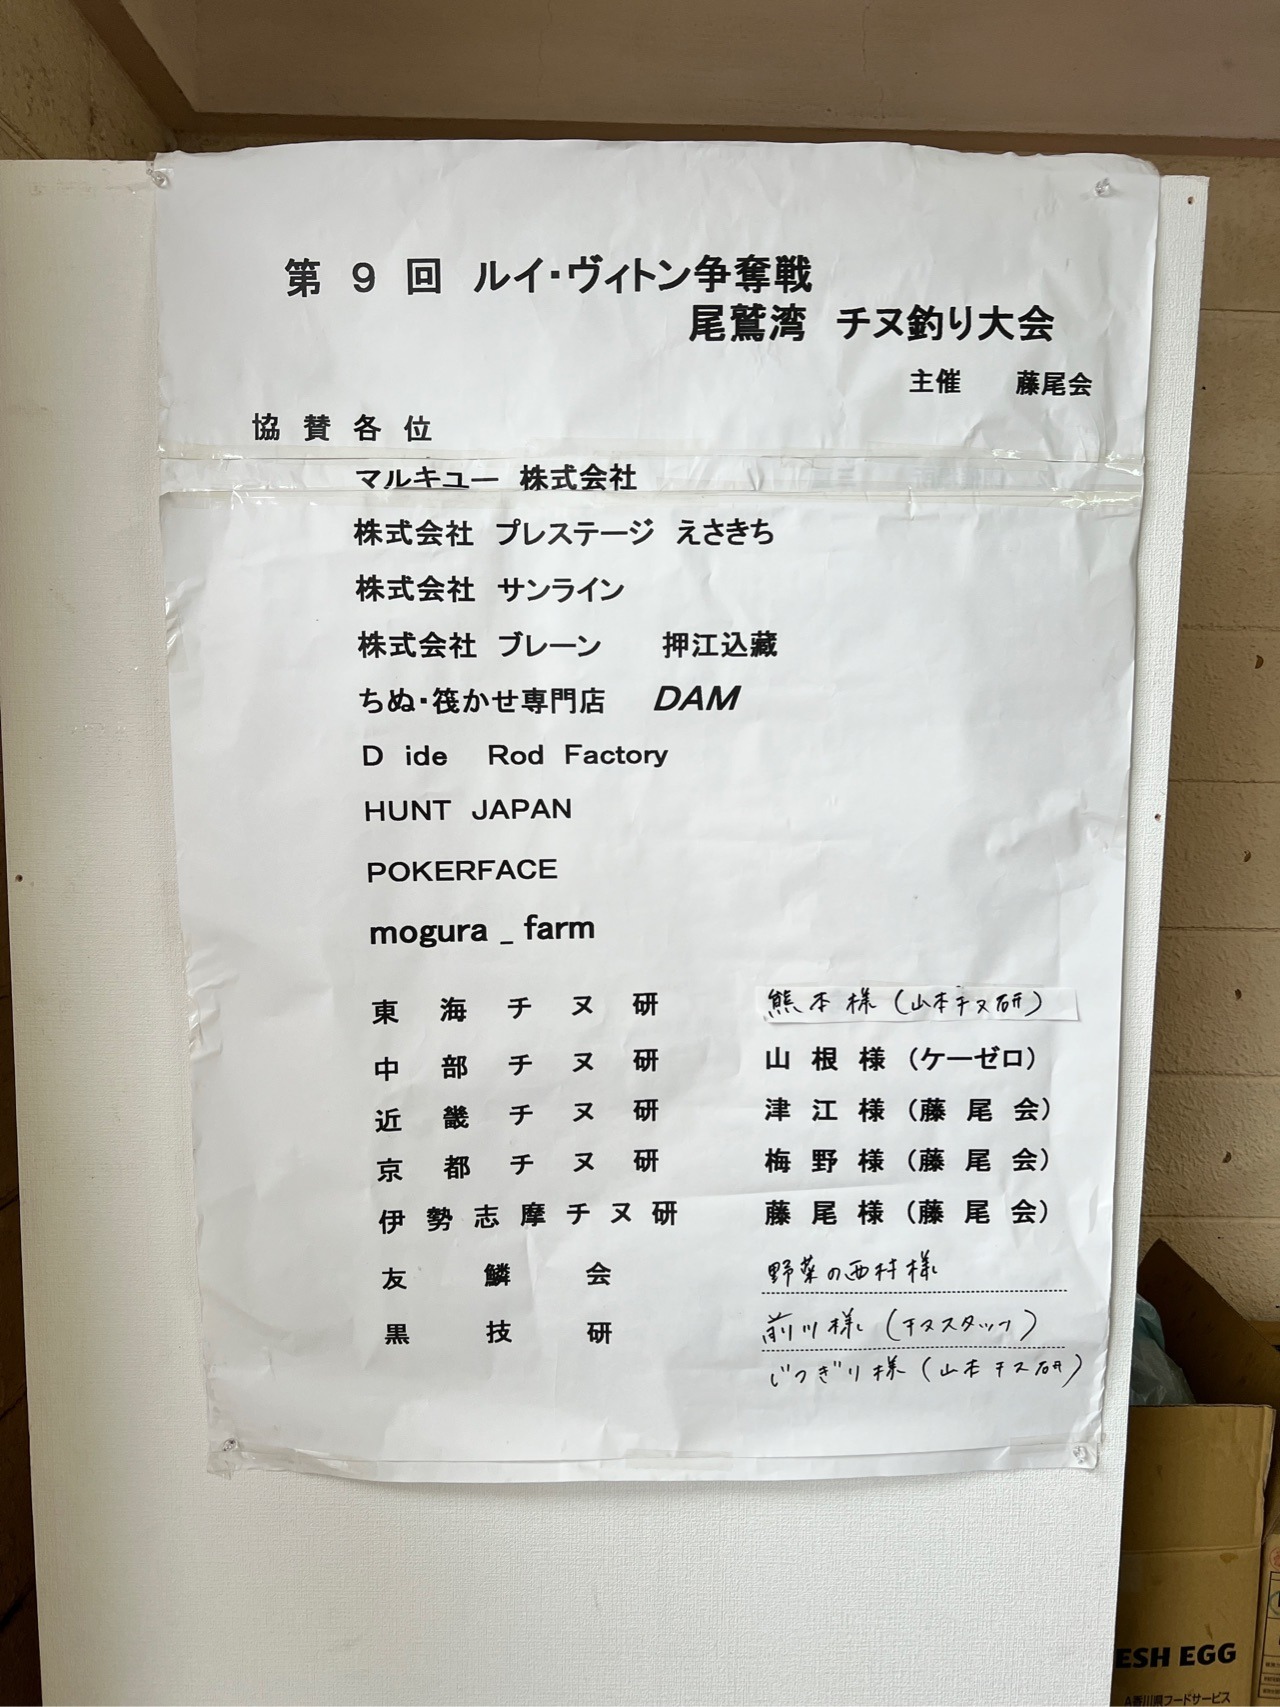 第 9 回 ルイ・ヴィトン争奪戦
尾鷲湾 チヌ釣り大会
主催 藤尾会
協 賛 各 位
マルキユー 株式会社
株式会社 プレステージ えさきち
株式会社 サンライン
株式会社 ブレーン 押江込蔵
ちぬ・筏かせ専門店 DAM
D ide Rod Factory
HUNT JAPAN
POKERFACE
mogura _ farm
東 海 チ ヌ 研 熊本様(山本チヌ研)
中 部 チ ヌ 研 山 根 様 (ケーゼロ)
近 畿 チ ヌ 研 津 江 様 (藤 尾 会)
京 都 チ ヌ 研 梅 野 様 (藤 尾 会)
伊 勢 志 摩 チ ヌ 研 藤 尾 様 (藤 尾 会)
友 鱗 会 野菜の西村様
黒 技 研 前川様(チヌスタッフ)
じつぎり様(山本チヌ研)
ESH EGG
A香川県フードサービス